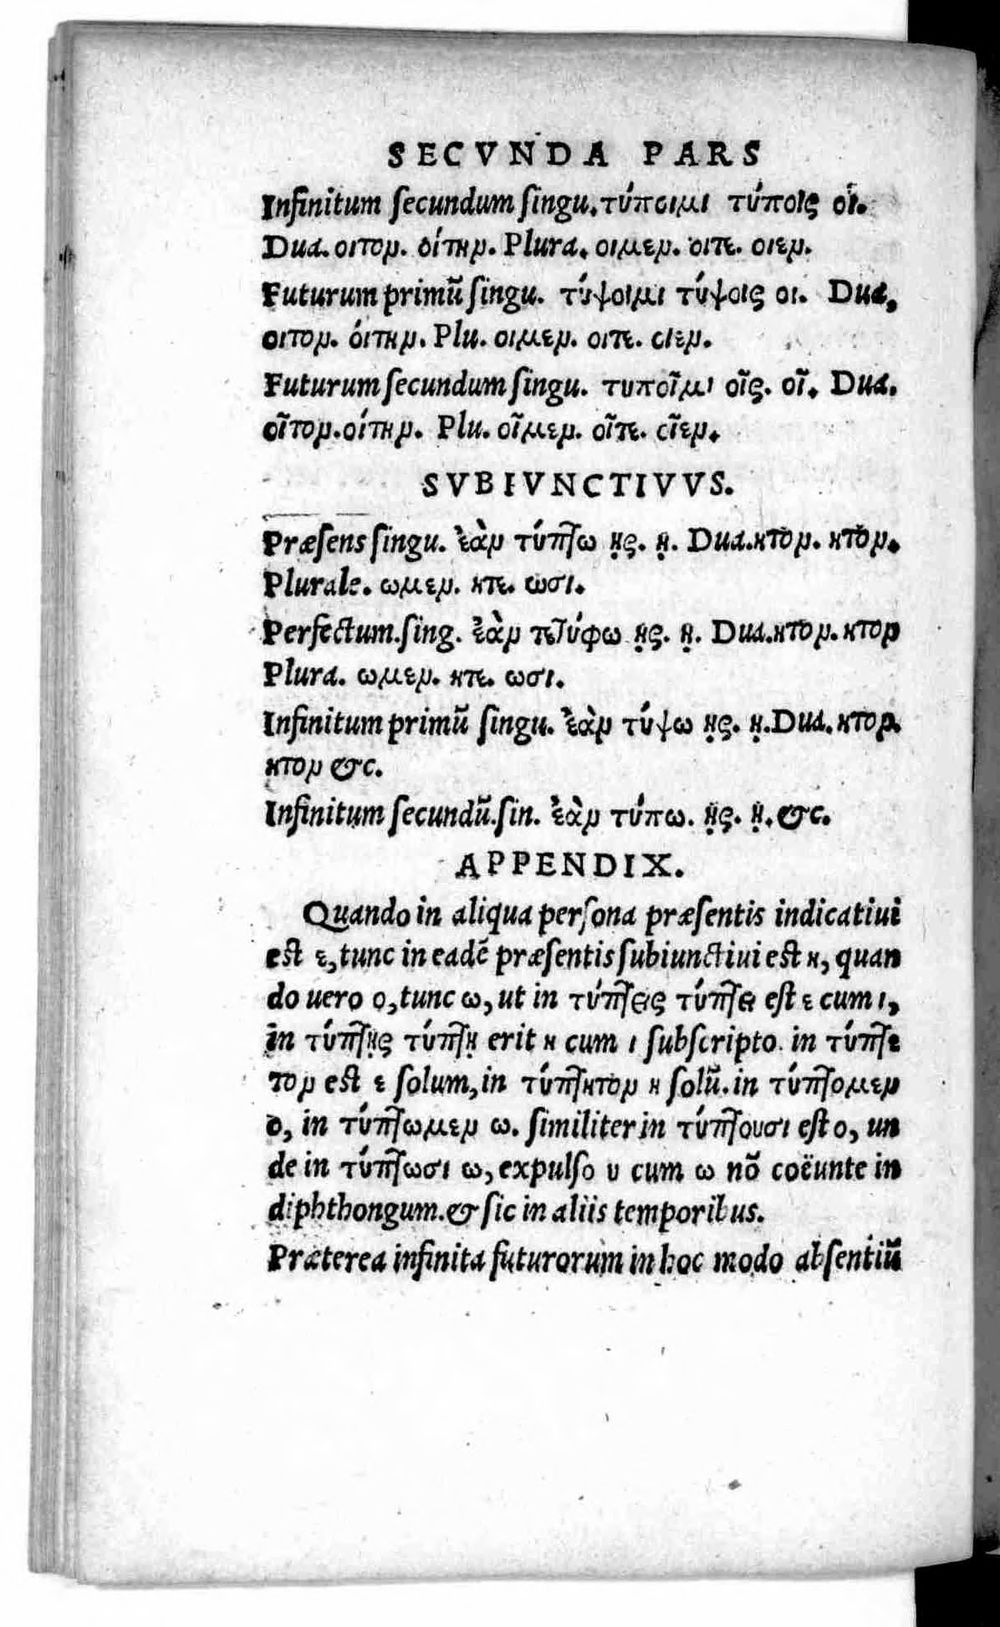 SECVNDA PARS
Infinitum secundum singu. τύποιμι τύποις οι.
Dua. οιτον. οίτην. Plura. οιμεν. οιτε. οιεν.
Futurum primũ singu. τύψοιμι τύψοις οι. Dua,
οιτον. όιτην. Plu. οιμεν. οιτε. οιεν.
Futurum secundum singu. τυποῖμι οῖς. οῖ. Dua.
οῖτον. οίτην. Plu. οῖμεν. οῖτε. οῖεν.
SVBIVNCTIVVS.
Præsens singu. ἐὰν τύπτω ῃς. ῃ. Dua. ητον. ητον.
Plurale. ωμεν. ητε. ωσι.
Perfectum. sing. ἐὰν τετύφω ῃς. ῃ. Dua. ητον. ητον
Plura. ωμεν. ητε. ωσι.
Infinitum primũ singu. ἐὰν τύψω ῃς. ῃ. Dua. ητον.
ητον &c.
Infinitum secundũ. sin. ἐὰν τύπω. ῃς. ῃ. &c.
APPENDIX.
Quando in aliqua persona præsentis indicatiui
est ε, tunc in eadẽ præsentis subiunctiui est η, quan
do uero ο, tunc ω, ut in τύπτεις τύπτει est ε cum ι,
in τύπτῃς τύπτῃ erit η cum ι subscripto. in τύπτε
τον est ε solum, in τύπτητον η solũ. in τύπτομεν
ο, in τύπτωμεν ω. similiter in τύπτουσι est ο, un
de in τύπτωσι ω, expulso υ cum ω nõ coëunte in
diphthongum. & sic in aliis temporibus.
Præterea infinita futurorum in hoc modo absentiũ